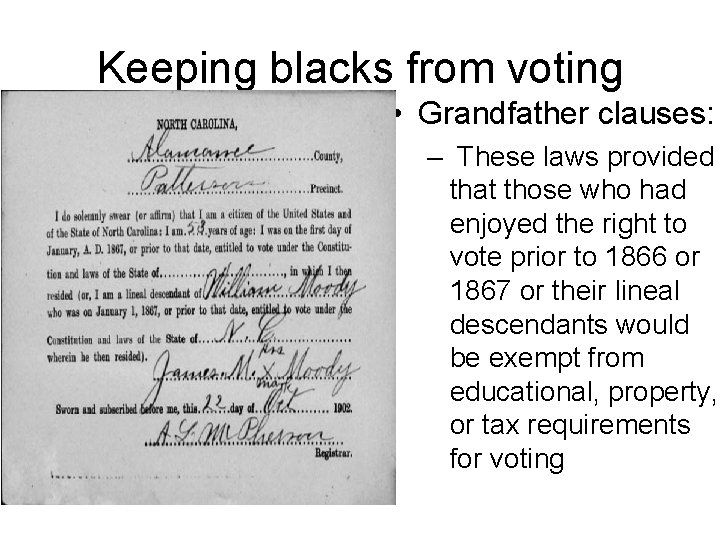 Keeping blacks from voting
NORTH CAROLINA,
Alamance County,
Patterson Precinct.
I do solemnly swear (or affirm) that I am a citizen of the United States and
of the State of North Carolina: I am 58 years of age: I was on the first day of
January, A. D. 1867, or prior to that date, entitled to vote under the Constitu-
tion and laws of the State of, in which I then
resided (or, I am a lineal descendant of William Moody
who was on January 1, 1867, or prior to that date, entitled to vote under the
Constitution and laws of the State of N. C.
wherein he then resided).
his
James M. x Moody
mark
Sworn and subscribed before me, this 22 day of Oct 1902.
A L McPherson
Registrar.
• Grandfather clauses:
– These laws provided
that those who had
enjoyed the right to
vote prior to 1866 or
1867 or their lineal
descendants would
be exempt from
educational, property,
or tax requirements
for voting